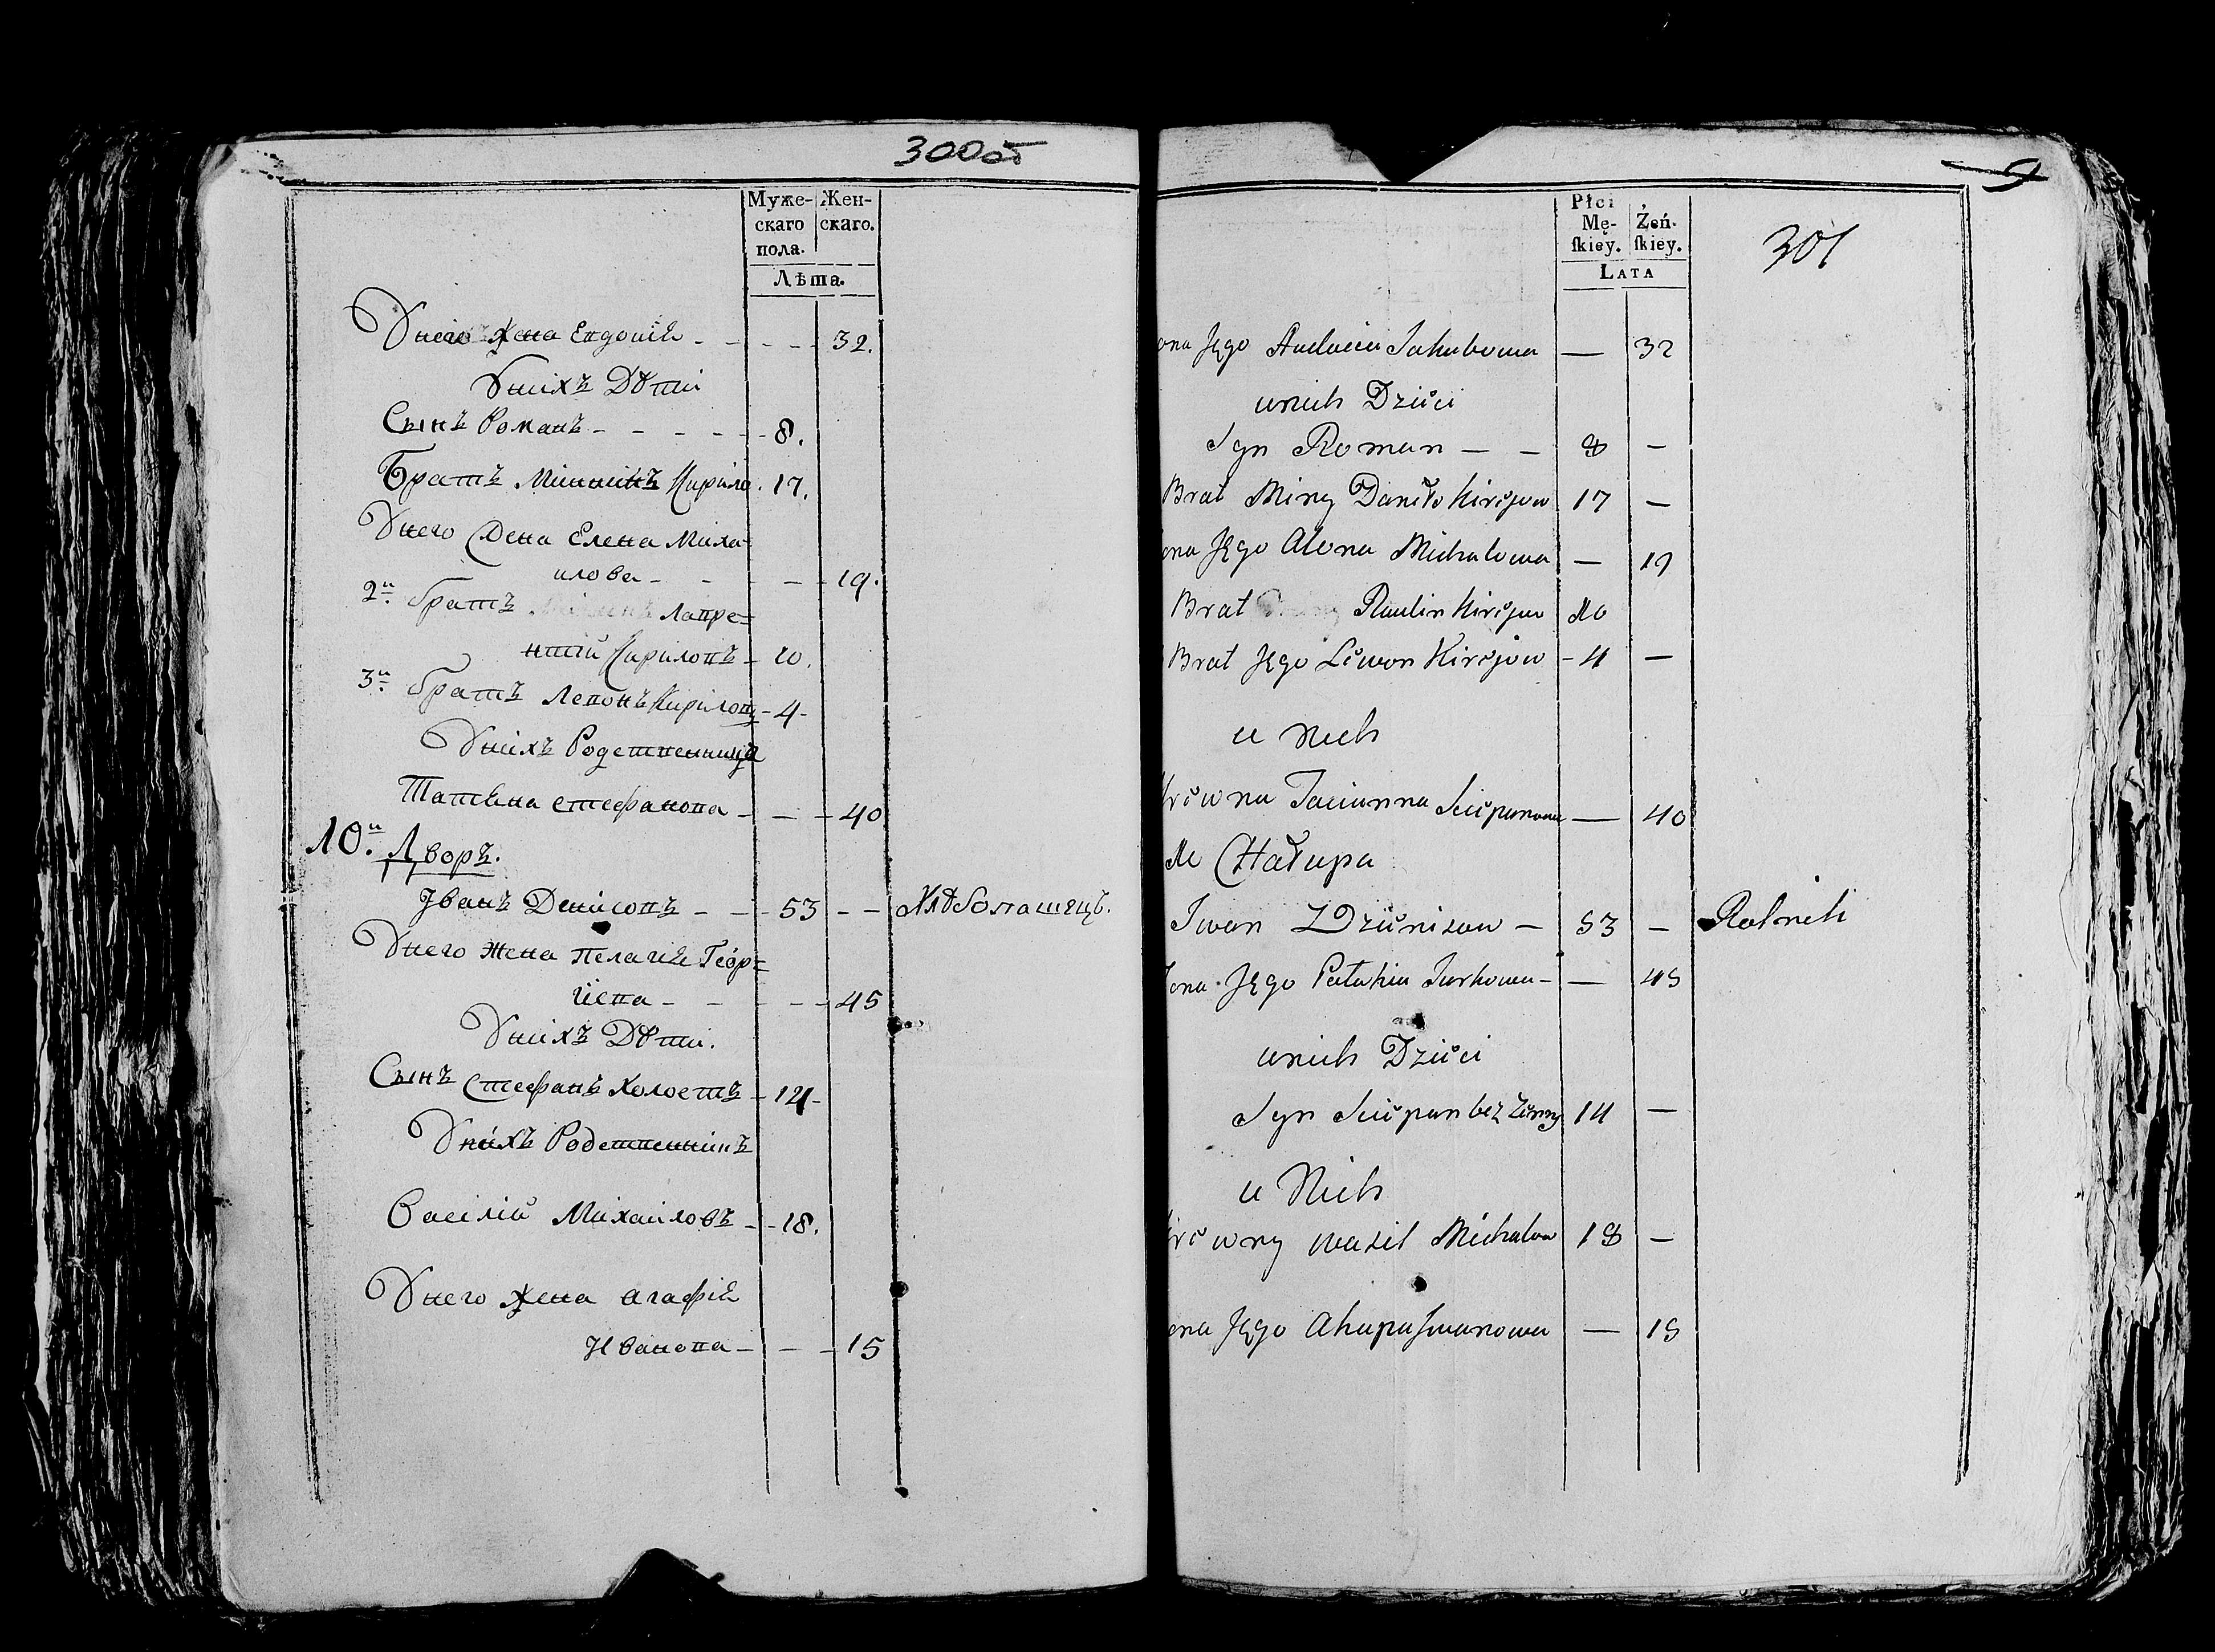 300об
Муже-
скаго
пола.
Жен-
скаго.
Лѣта.
Унего Жена Евдокія - - - - 32.
Унихъ Дѣти
Сынъ Романъ - - - - - 8.
Братъ Кирило 17.
Унего Жена Елена Миха=
илова - - - - 19.
2й братъ Лавре=
нтій Кириловъ - 10.
3й братъ Левонъ Кириловъ - 4 -
Унихъ Родственница
Татіяна Стефанова - - - 40
10й Дворъ.
Іванъ Денисовъ - - - 53 - - Хлѣбопашецъ.
Унего Жена Пелагія Геор=
гіева - - - - 45
Унихъ Дѣти.
Сынъ Стефанъ Холостъ - 14 -
Унихъ Родственникъ
Василій Михайловъ - - 18.
Унего Жена Агафія
Иванова - - - 15
9
301
Płci
Mę-
ſkiey.
Żeń-
ſkiey.
LATA
ona Jego Audocia Jakubowa — 32
unich Dzieci
Syn Roman — — 8 —
Brat Miny Daniło Kirejow 17 —
ona Jego Alona Michalowa — 19
Brat Paulin Kirejow 10
Brat Jego Lewon Kirejow - 4 —
u Nich
Krewna Tacianna Sciepanowa — 40
10 Chałupa
Iwan Dzienisow — 53 — Rolnik
ona Jego Pałahia Jurkowa - — 45
unich Dzieci
Syn Sciepan bez Żenny 14 —
u Nich
Krewny Wasil Michalow 18 —
ona Jego Ahapa Iwanowa — 15